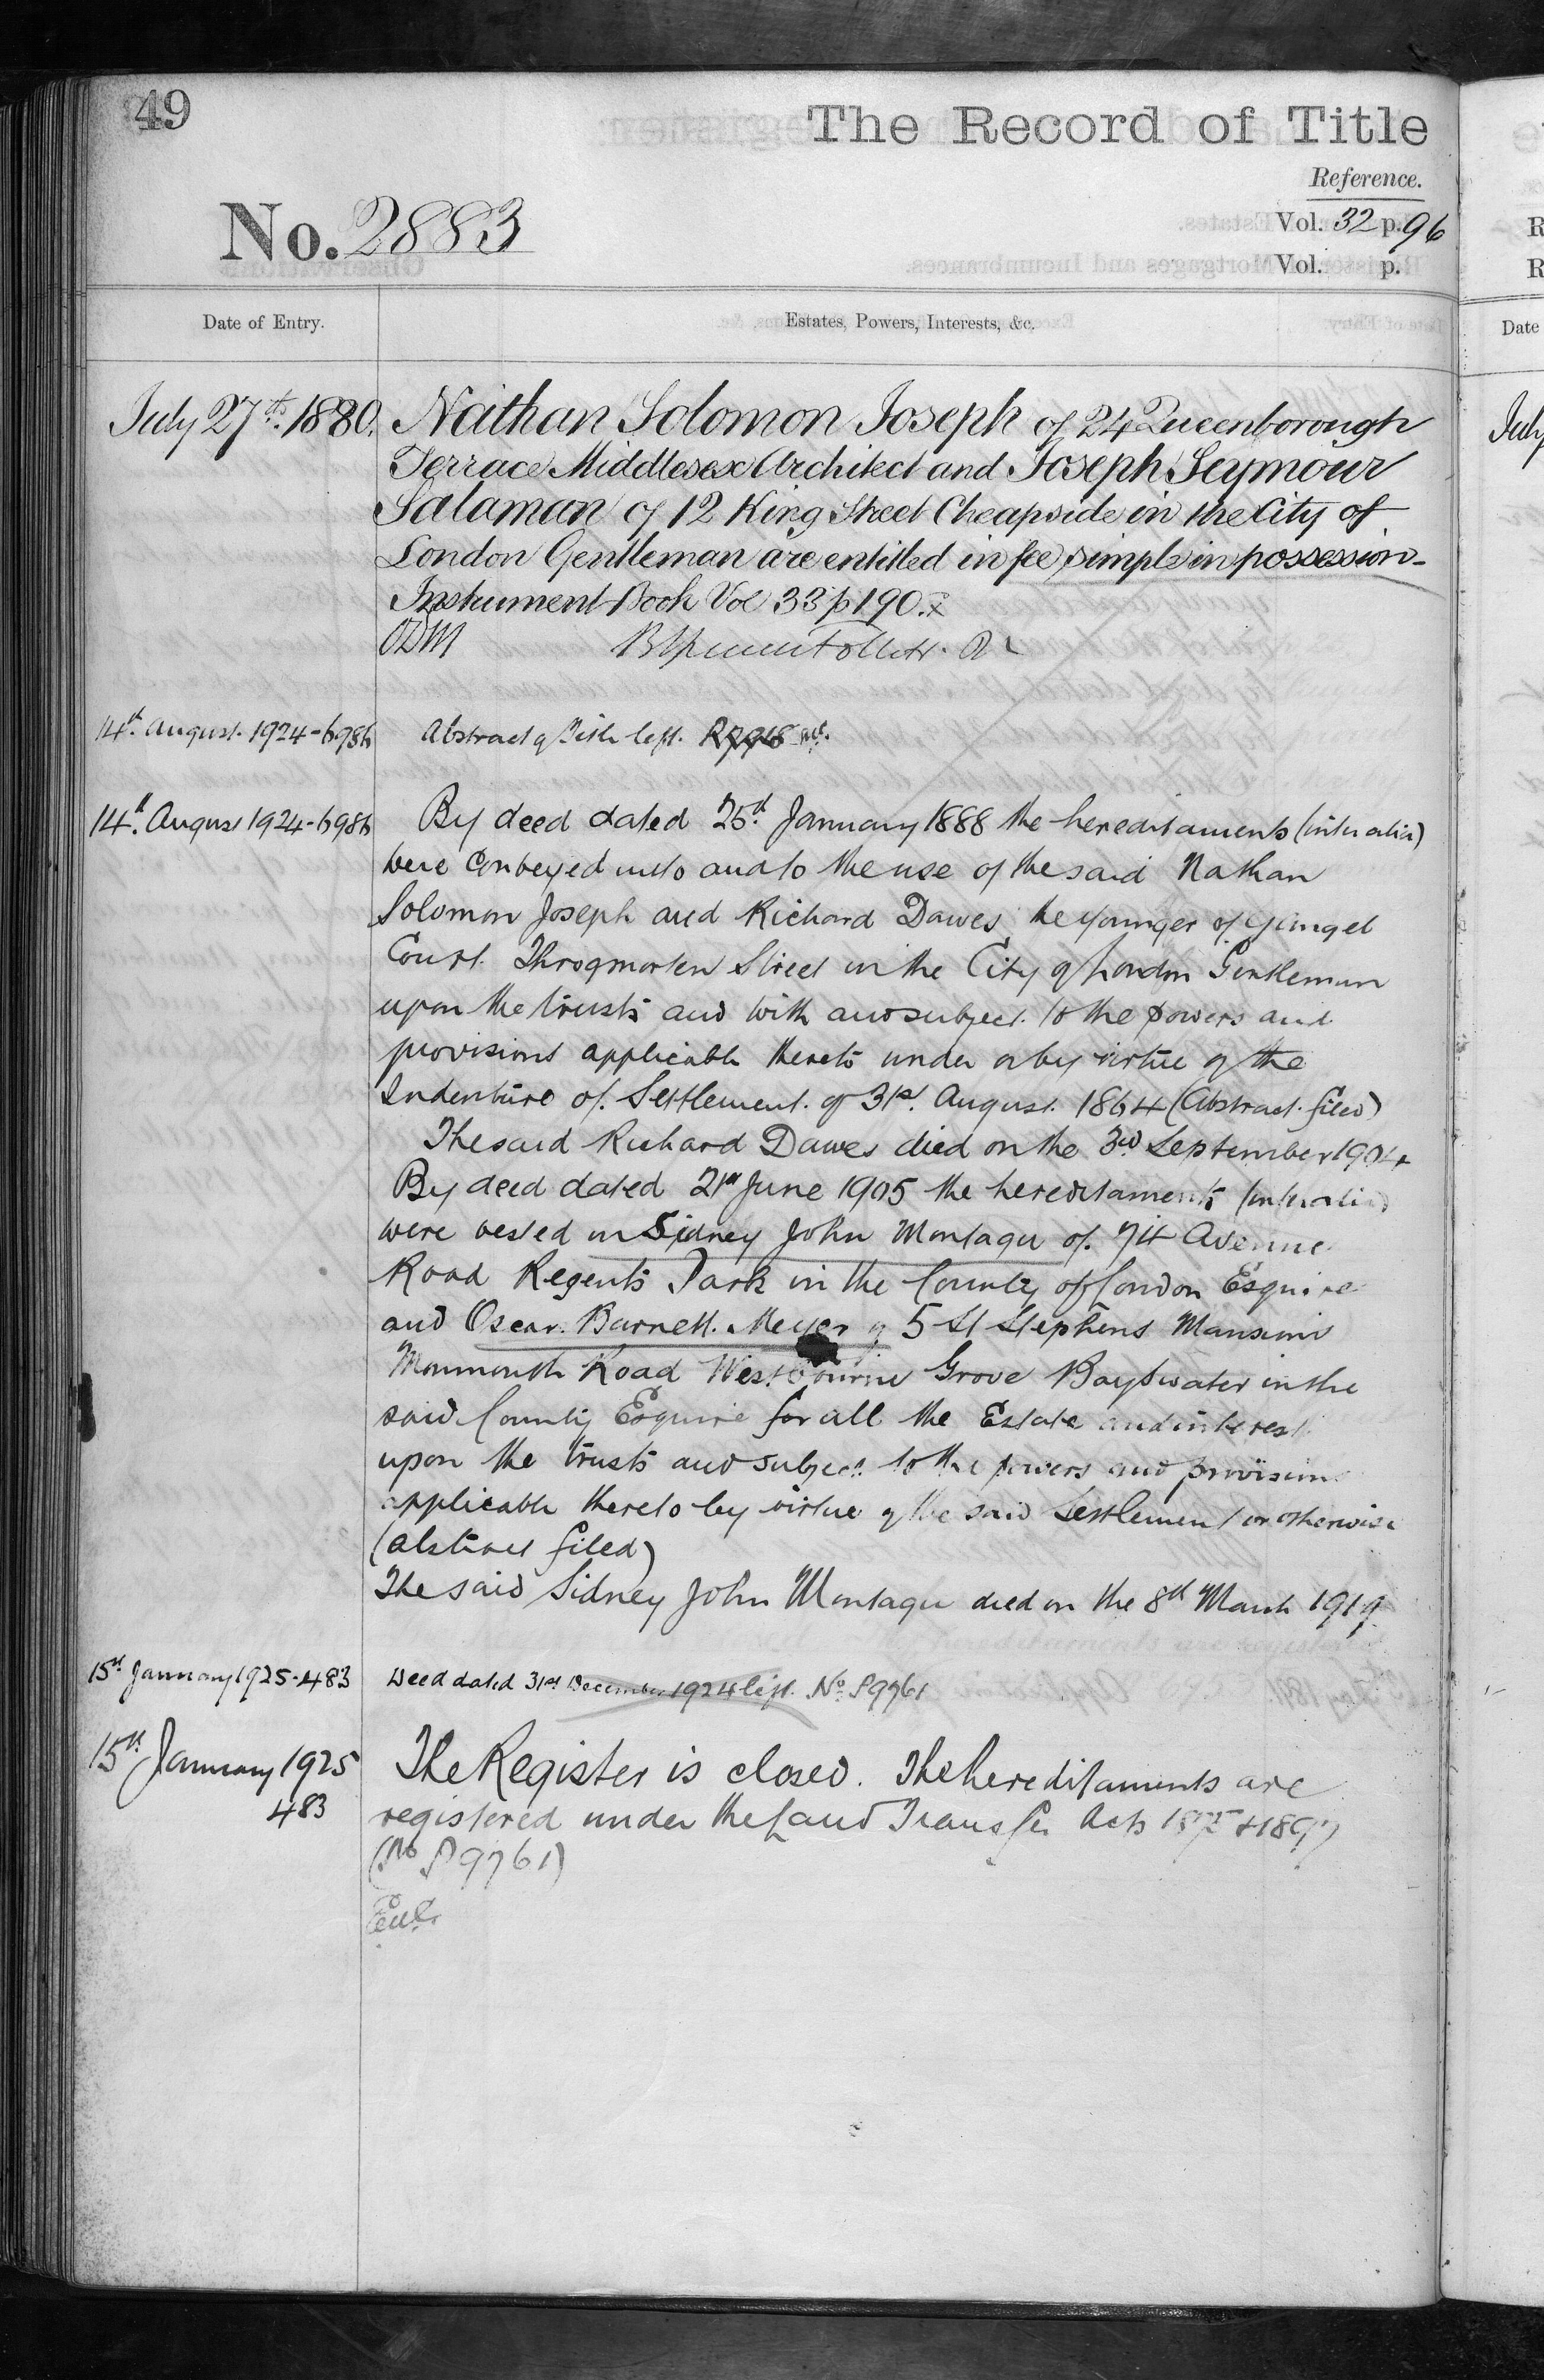 49
The Record of Title
Reference.
No. 2883
Vol. 32 p. 96
Vol. p.
Date of Entry.
Estates, Powers, Interests, &c.
July 27th. 1880.
Nathan Solomon Joseph of 24 Queenborough
Terrace Middlesex Architect and Joseph Seymour
Salaman of 12 King Street Cheapside in the City of
London Gentleman are entitled in fee simple in possession-
Instrument Book Vol 33 p 190.
14th. August. 1924 - 6986
Abstract of Title left.
14th. August 1924 - 6986
By deed dated 25th January 1888 the hereditaments (inter alia)
were conveyed unto and to the use of the said Nathan
Solomon Joseph and Richard Dawes the younger of 9 Angel
Court Throgmorten Street in the City of London Gentleman
upon the trusts and with and subject to the powers and
provisions applicable thereto under or by virtue of the
Indenture of Settlement of 31st. August 1864 (Abstract filed)
The said Richard Dawes died on the 3rd September 1904
By deed dated 21st June 1905 the hereditaments (inter alia)
were vested in Sidney John Montagu of 74 Avenue
Road Regents Park in the County of London Esquire
and Oscar Barnett Meyer of 5 St Stephens Mansions
Monmouth Road Westbourne Grove Bayswater in the
said County Esquire for all the Estate and interest
upon the trusts and subject to the powers and provisions
applicable thereto by virtue of the said Settlement or otherwise
(abstract filed)
The said Sidney John Montagu died on the 8th March 1919
15th January 1925 - 483
Deed dated 31st December 1924 left. No P9761
15th January 1925
483
The Register is closed. The hereditaments are
registered under the Land Transfer Acts 1875 & 1897
(No P9761)